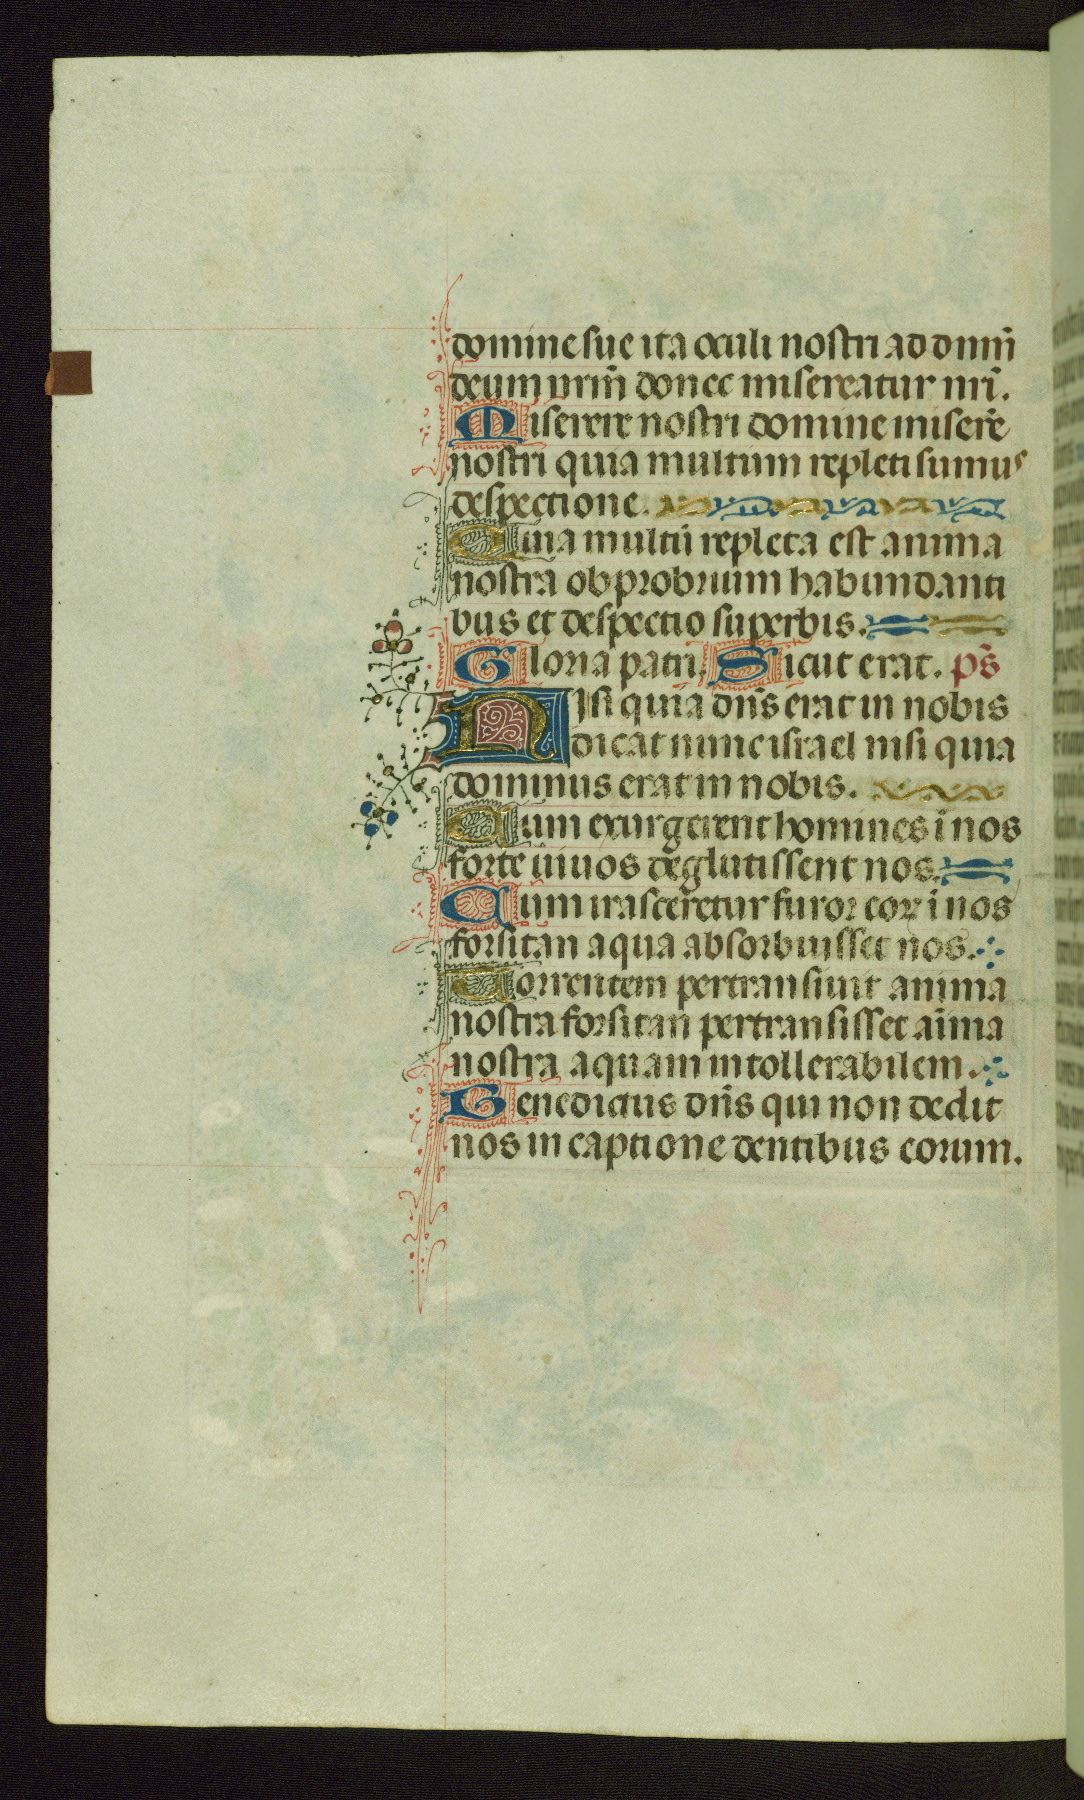 domine sue ita oculi nostri ad dnm̄
deum nrm̄ donec misereatur nri̅.
Miserere nostri domine miserē
nostri quia multum repleti sumus
despectione.
Quia multū repleta est anima
nostra obprobrium habundanti
bus et despectio superbis.
Gloria patri, Sicut erat. ps̄
Nisi quia dn̄s erat in nobis
dicat nunc israel nisi quia
dominus erat in nobis.
Cum exurgerent homines ī nos
forte viuos deglutissent nos.
Cum irasceretur furor eoꝝ ī nos
forsitan aqua absorbuisset nos.
Torrentem pertransiuit anima
nostra forsitan pertransisset aīma
nostra aquam intollerabilem.
Benedictus dn̄s qui non dedit
nos in captione dentibus eorum.